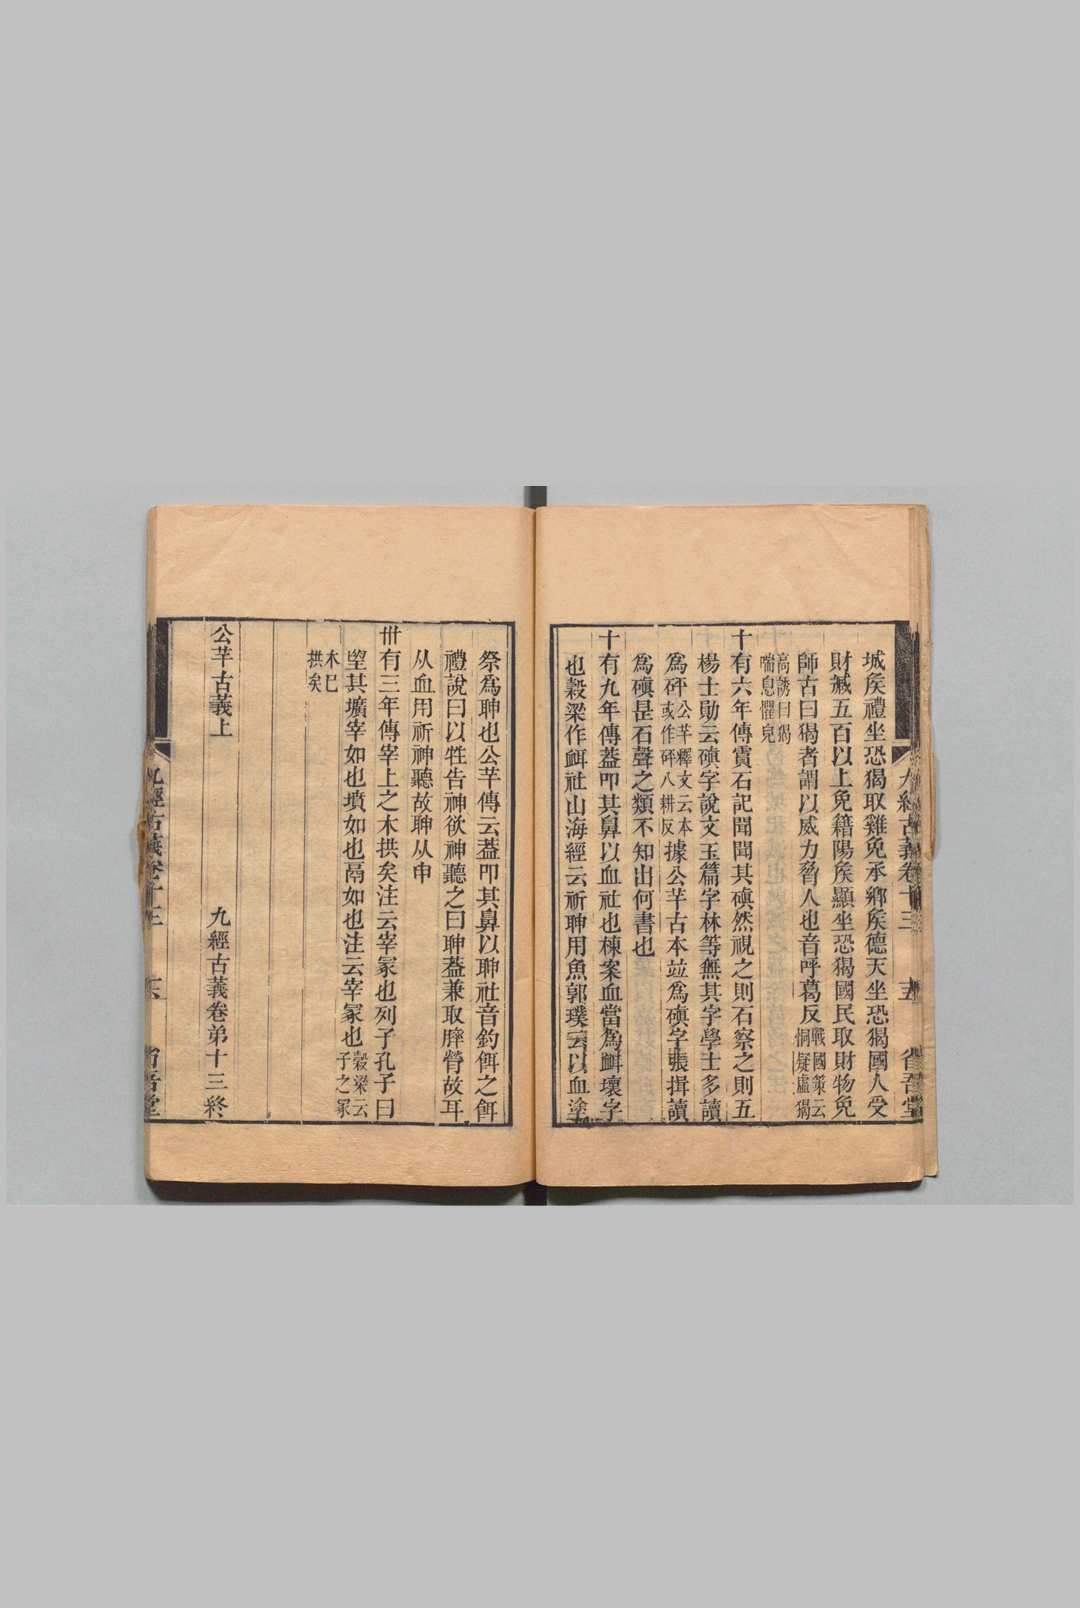 城矦禮坐恐猲取雞免承鄉矦德天坐恐猲國人受
財臧五百以上免籍陽矦顯坐恐猲國民取財物免
師古曰猲者謂以威力脅人也音呼葛反戰國策云恫疑虛猲
高誘曰猲喘息懼皃
十有六年傳霣石記聞聞其磌然視之則石察之則五
楊士勛云磌字說文玉篇字林等無其字學士多讀
爲砰公羊釋文云本或作砰八耕反據公羊古本竝爲磌字張揖讀
爲磌是石聲之類不知出何書也
十有九年傳葢叩其鼻以血社也棟案血當爲衈壞字
也穀梁作衈社山海經云祈聅用魚郭璞云以血塗
祭爲聅也公羊傳云葢叩其鼻以聅社音釣餌之餌
禮說曰以牲告神欲神聽之曰聅葢兼取膟膋故耳
从血用祈神聽故聅从申
卅有三年傳宰上之木拱矣注云宰冢也列子孔子曰
望其壙宰如也墳如也鬲如也注云宰冢也穀梁云子之冢
木已拱矣
公羊古義上
九經古義卷弟十三終
九經古義卷十三 五 省吾堂
九經古義卷十三 六 省吾堂